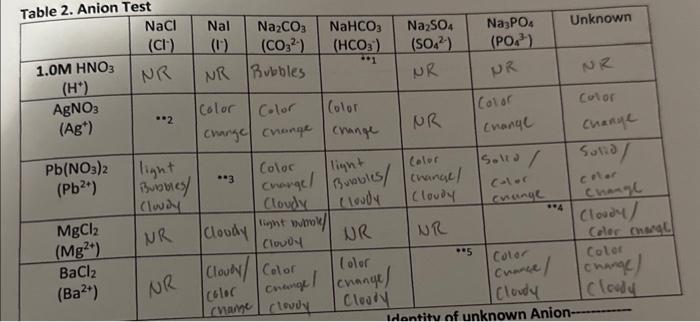 Table 2. Anion Test
NaCl NaI Na₂CO₃ NaHCO₃ Na₂SO₄ Na₃PO₄ Unknown
(Cl⁻) (I⁻) (CO₃²⁻) (HCO₃⁻) (SO₄²⁻) (PO₄³⁻)
1.0M HNO₃ (H⁺) NR NR Bubbles **1 NR NR NR
AgNO₃ (Ag⁺) **2 Color change Color change Color change NR Color change Color change
Pb(NO₃)2 (Pb²⁺) light Bubbles/ Cloudy **3 Color change/ Cloudy light Bubbles/ Cloudy Color change/ Cloudy Solid/ Color change Solid/ color change
MgCl₂ (Mg²⁺) NR Cloudy light bubble/ Cloudy NR NR **4 Cloudy/ Color change
BaCl₂ (Ba²⁺) NR Cloudy/ Color change Color change/ Cloudy Color change/ Cloudy **5 Color change/ Cloudy Color change/ Cloudy
Identity of unknown Anion-----------